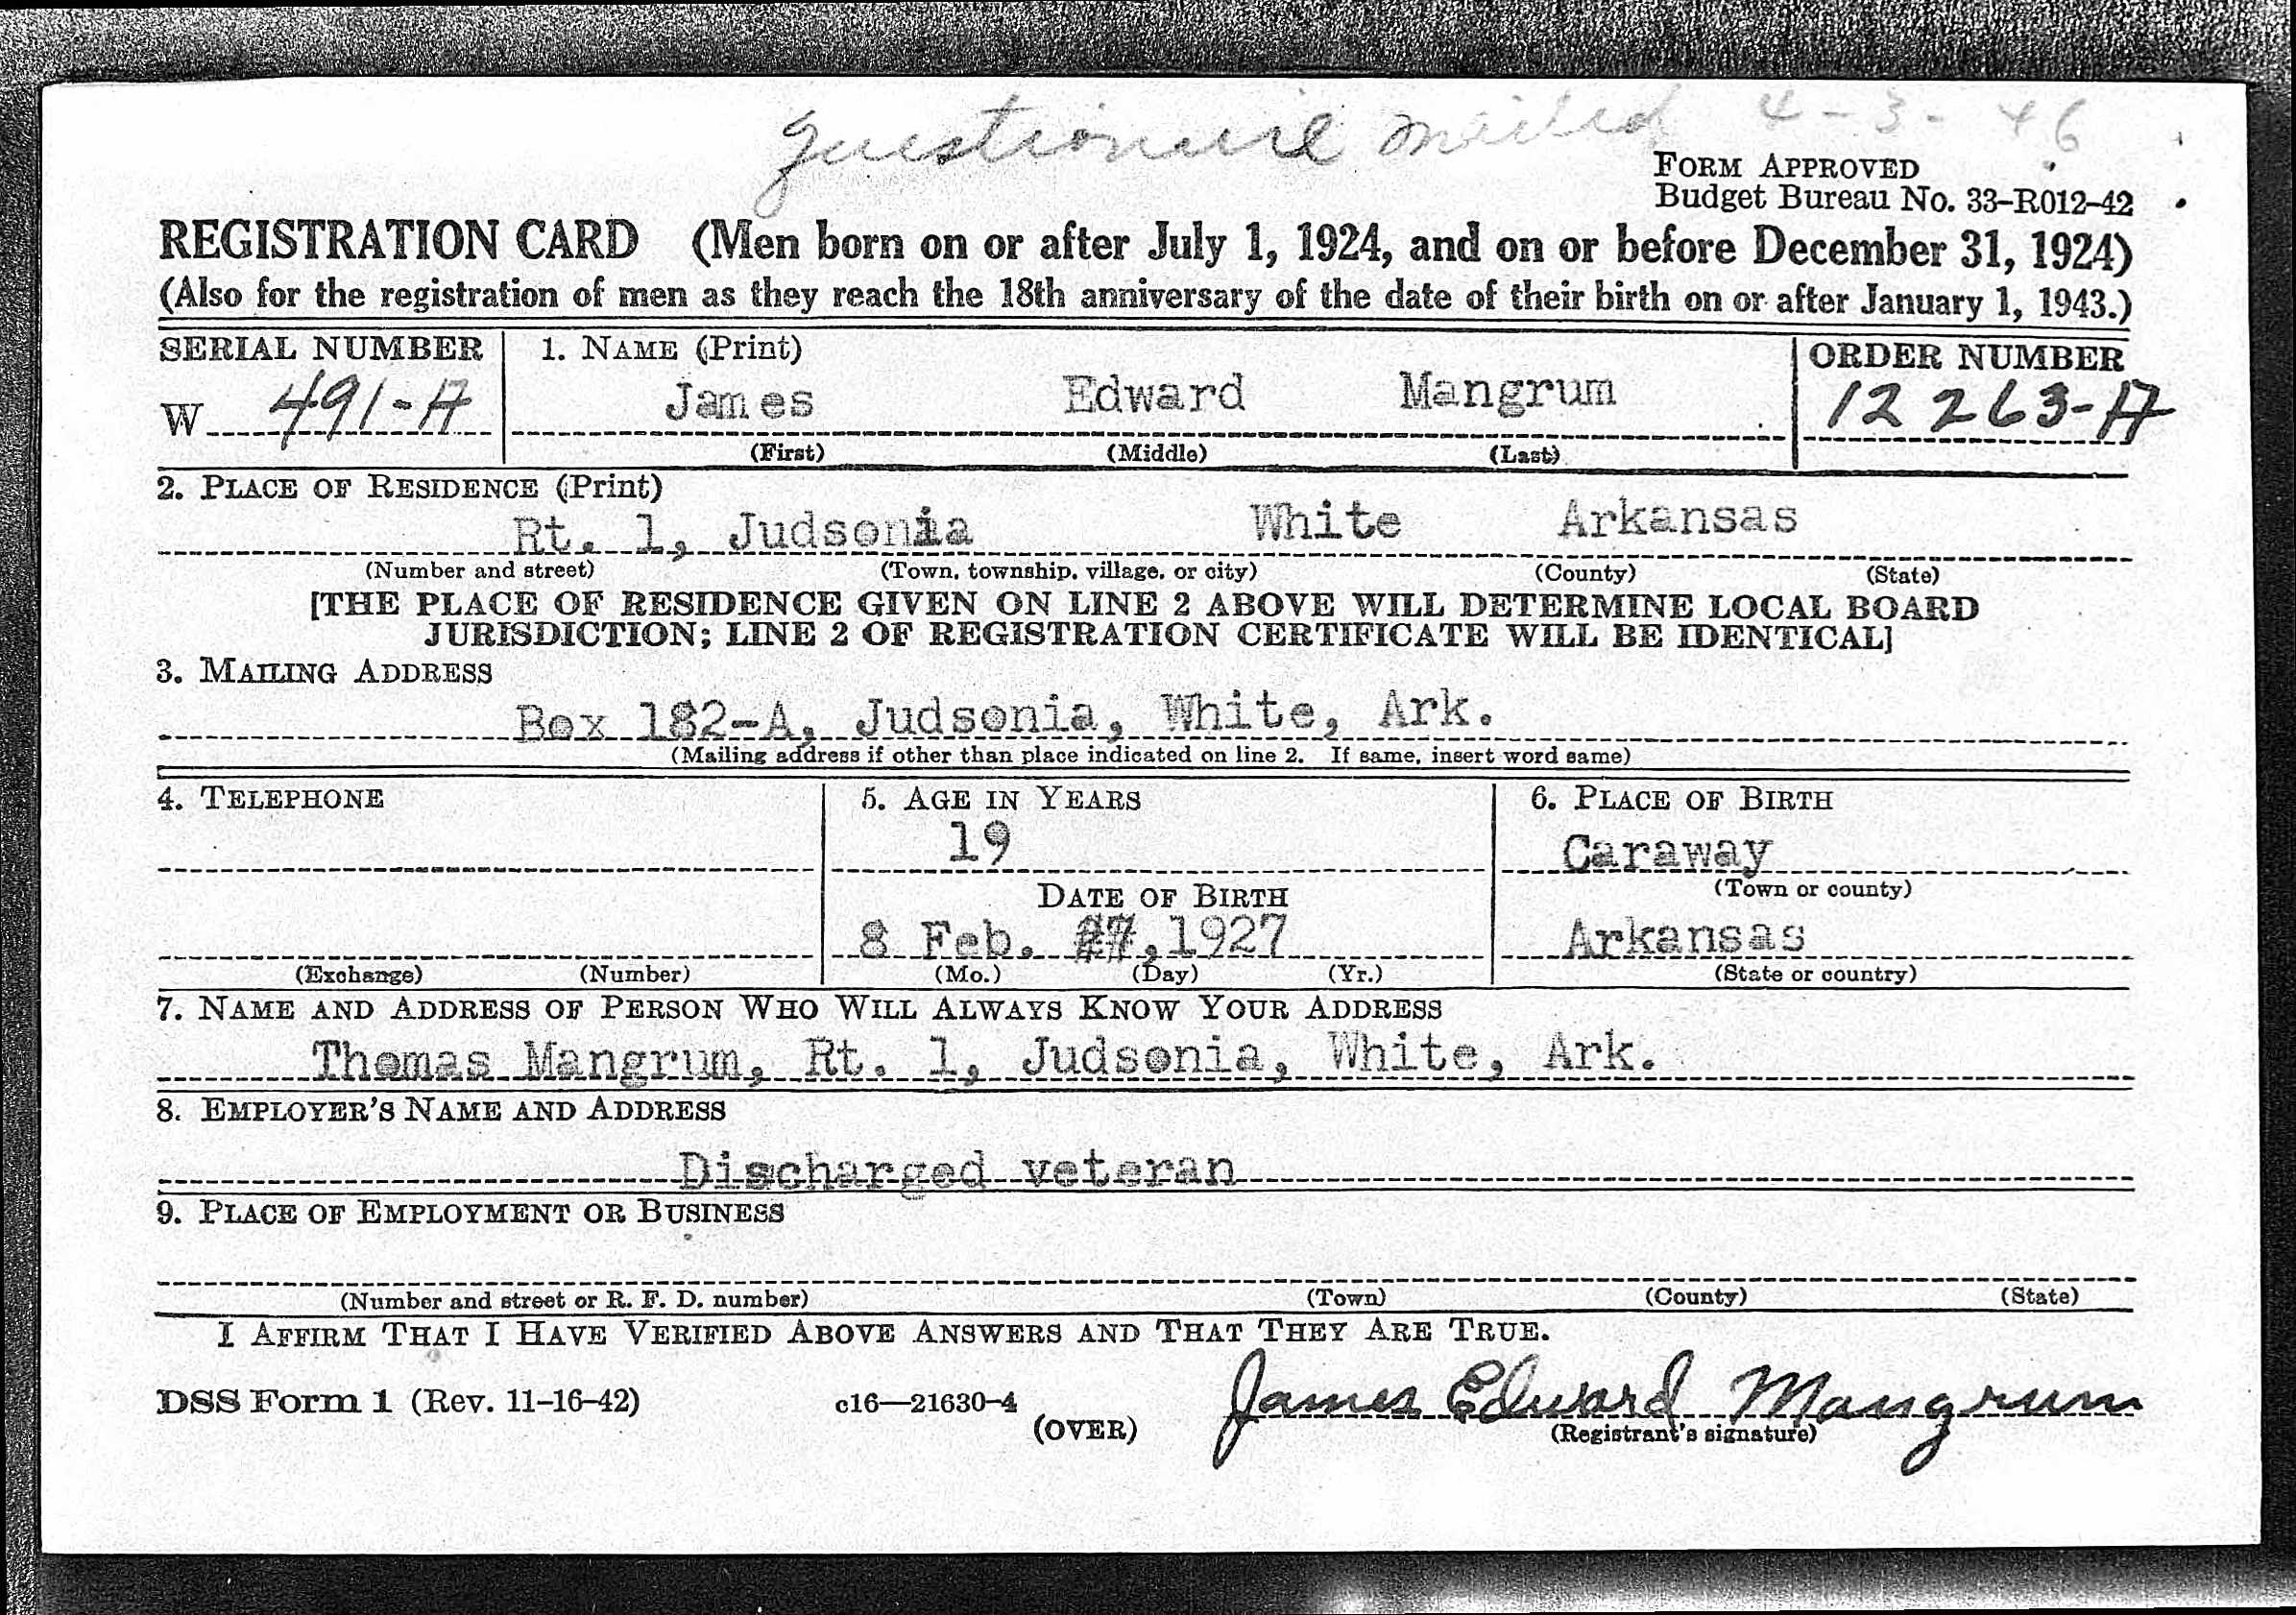 Questionaire mailed 4-3-46
FORM APPROVED
Budget Bureau No. 33-R012-42
REGISTRATION CARD (Men born on or after July 1, 1924, and on or before December 31, 1924)
(Also for the registration of men as they reach the 18th anniversary of the date of their birth on or after January 1, 1943.)
SERIAL NUMBER 1. NAME (Print) ORDER NUMBER
W 491-A James Edward Mangrum 12263-A
(First) (Middle) (Last)
2. PLACE OF RESIDENCE (Print)
Rt. 1, Judsonia White Arkansas
(Number and street) (Town, township, village, or city) (County) (State)
[THE PLACE OF RESIDENCE GIVEN ON LINE 2 ABOVE WILL DETERMINE LOCAL BOARD
JURISDICTION; LINE 2 OF REGISTRATION CERTIFICATE WILL BE IDENTICAL]
3. MAILING ADDRESS
Box 182-A, Judsonia, White, Ark.
(Mailing address if other than place indicated on line 2. If same, insert word same)
4. TELEPHONE 5. AGE IN YEARS 6. PLACE OF BIRTH
19 Caraway
(Town or county)
DATE OF BIRTH
8 Feb. , 1927 Arkansas
(Exchange) (Number) (Mo.) (Day) (Yr.) (State or country)
7. NAME AND ADDRESS OF PERSON WHO WILL ALWAYS KNOW YOUR ADDRESS
Thomas Mangrum, Rt. 1, Judsonia, White, Ark.
8. EMPLOYER'S NAME AND ADDRESS
Discharged veteran
9. PLACE OF EMPLOYMENT OR BUSINESS
(Number and street or R. F. D. number) (Town) (County) (State)
I AFFIRM THAT I HAVE VERIFIED ABOVE ANSWERS AND THAT THEY ARE TRUE.
DSS Form 1 (Rev. 11-16-42) c16—21630-4 (OVER) James Edward Mangrum
(Registrant's signature)